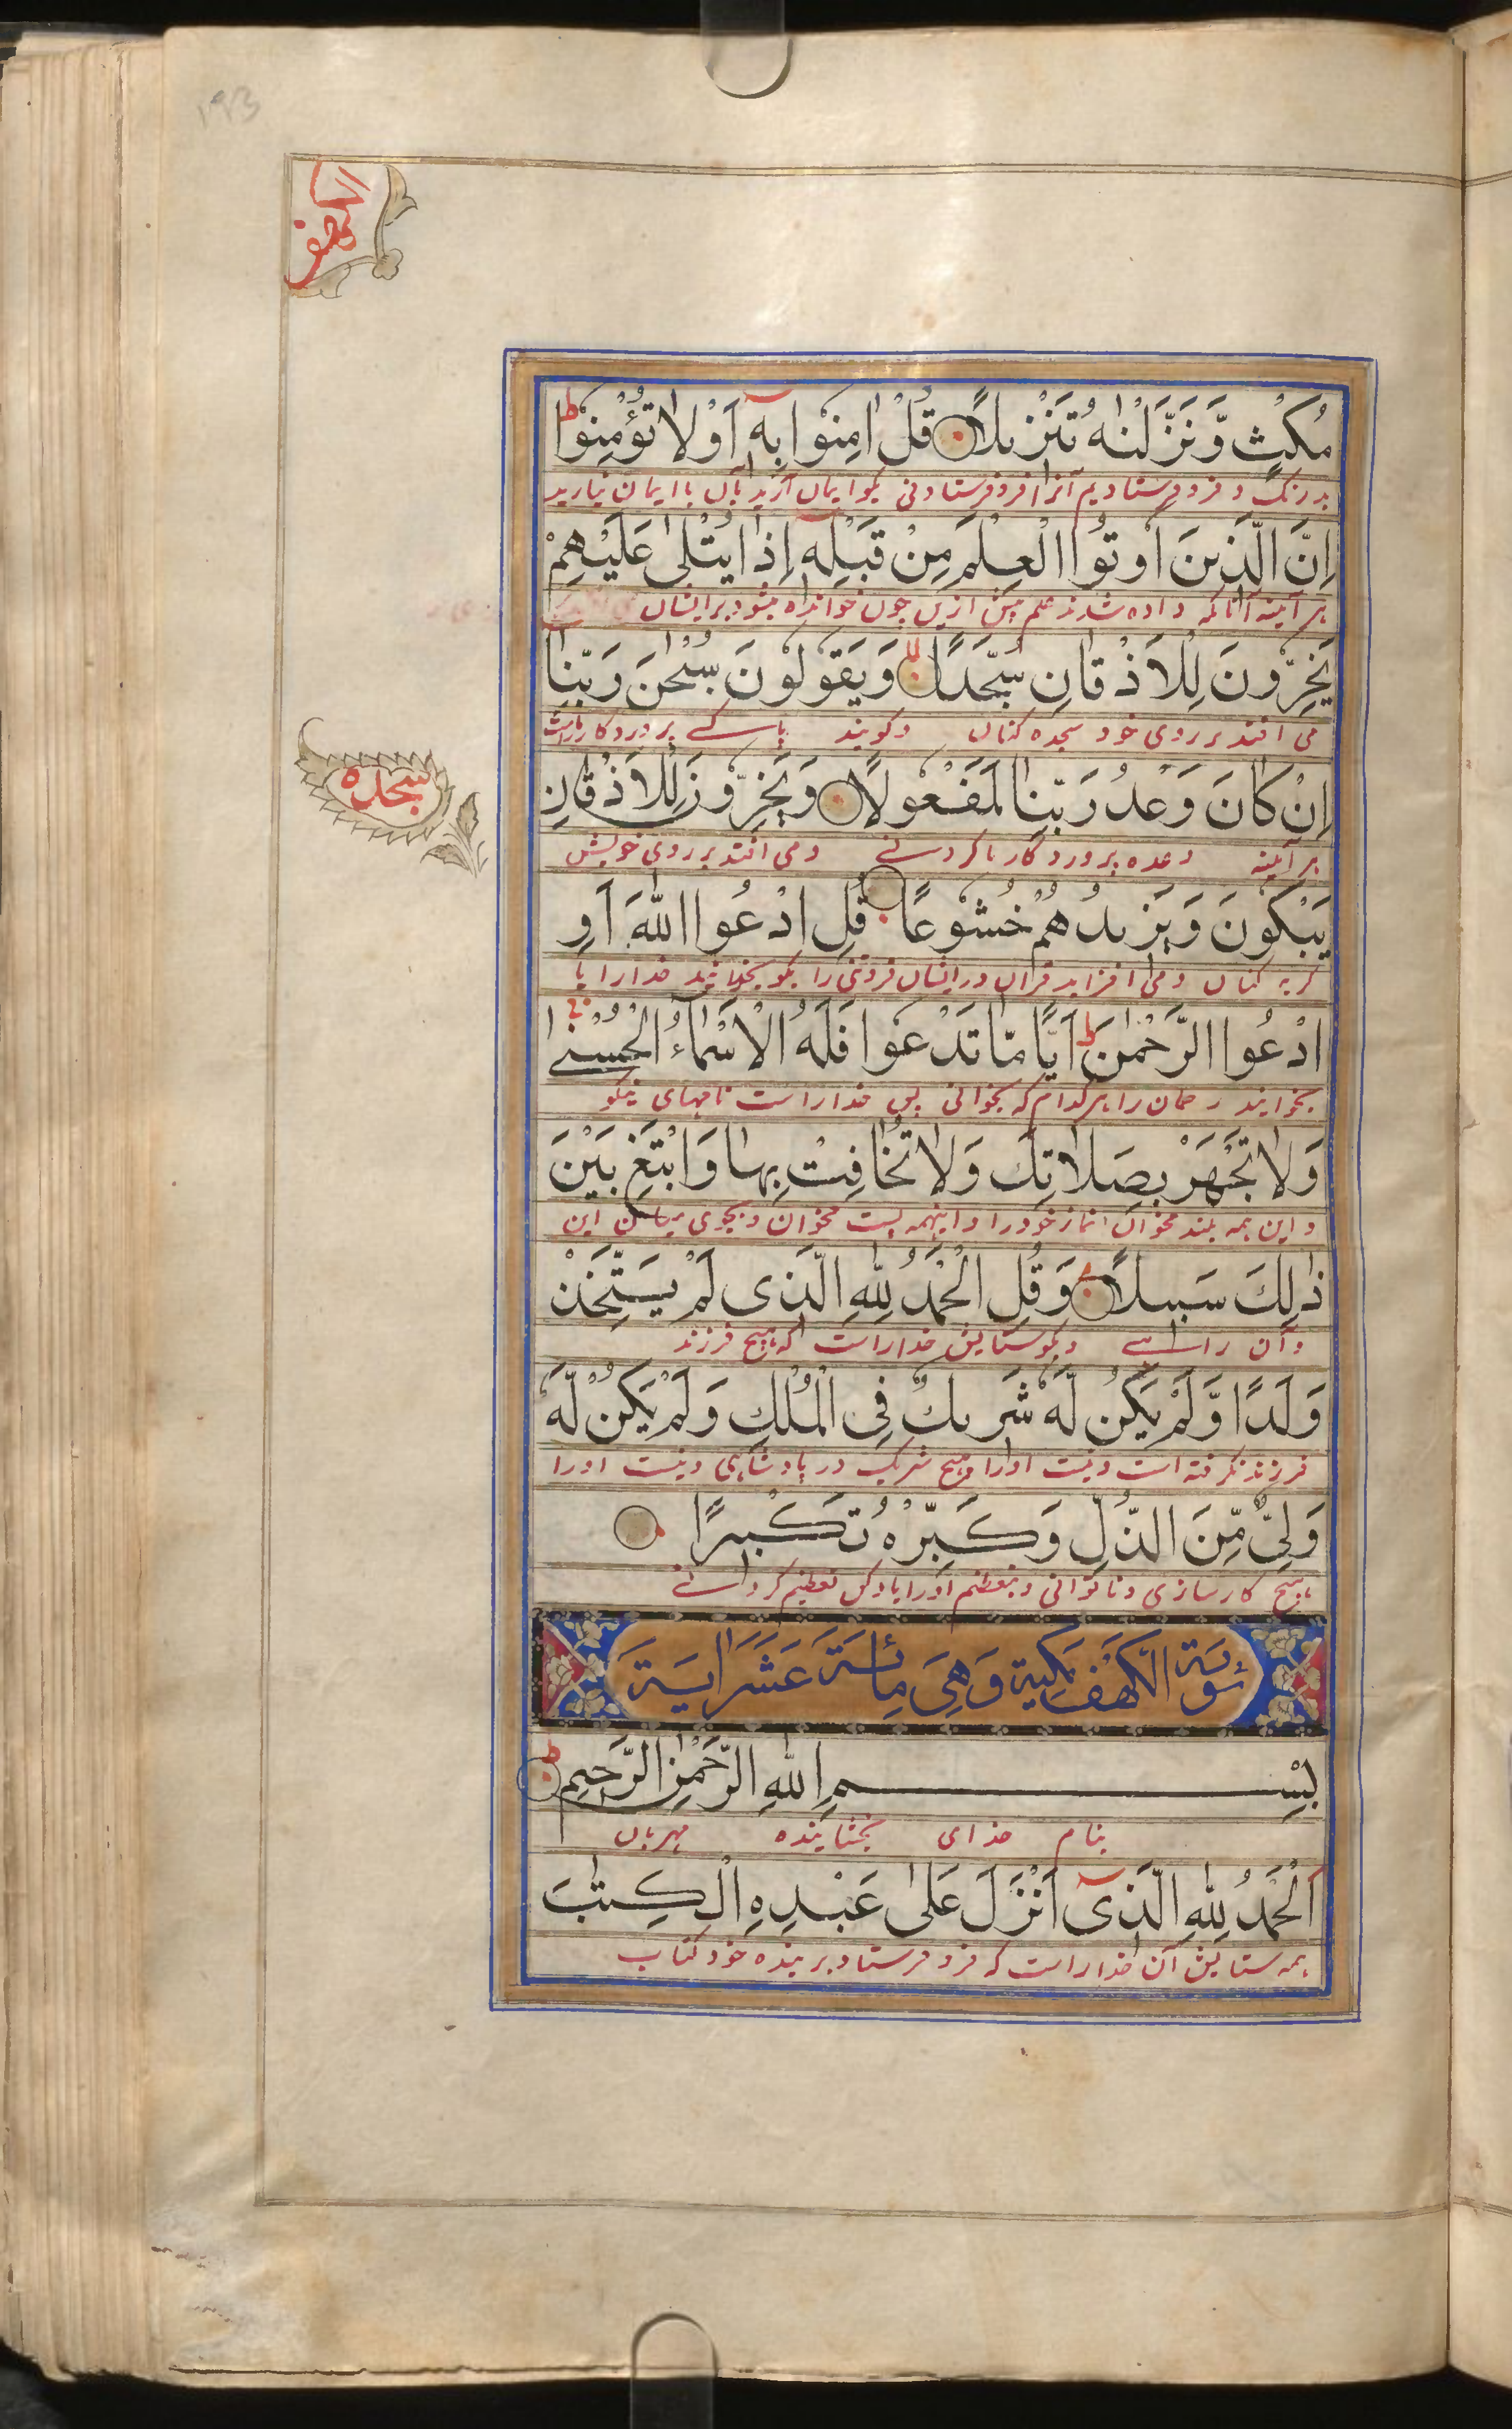 ۱۹۳
الكهف
مُكْثٍ وَّنَزَّلْنٰهُ تَنْزِيلًا قُلْ اٰمِنُوْا بِهٖٓ اَوْ لَا تُؤْمِنُوْا ط
بدرنگ و فرو فرستادیم آنرا فرو فرستادنی بگو ایمان آرید بآن یا ایمان نیارید
اِنَّ الَّذِينَ اُوْتُوا الْعِلْمَ مِنْ قَبْلِهٖٓ اِذَا يُتْلٰى عَلَيْهِمْ
هر آئینه آنانکه داده شدند علم پیش ازین چون خوانده میشود بر ایشان
يَخِرُّوْنَ لِلْاَذْقَانِ سُجَّدًا لا وَّيَقُوْلُوْنَ سُبْحٰنَ رَبِّنَا
می افتند بر روی خود سجده کنان و گویند پاکے پروردگار ماراست
سجده
اِنْ كَانَ وَعْدُ رَبِّنَا لَمَفْعُوْلًا وَيَخِرُّوْنَ لِلْاَذْقَانِ
هر آئینه وعده پروردگار ما کردنے و می افتند بر روی خویش
يَبْكُوْنَ وَيَزِيدُهُمْ خُشُوْعًا قُلِ ادْعُوا اللّٰهَ اَوِ
گریه کنان و می افزاید قران در ایشان فروتنی را بگو بخوانید خدا را یا
ادْعُوا الرَّحْمٰنَ ط اَيًّا مَّا تَدْعُوْا فَلَهُ الْاَسْمَاۤءُ الْحُسْنٰى
بخوانید رحمان را هر کدام که بخوانی پس خدا راست نامهای نیکو
وَلَا تَجْهَرْ بِصَلَاتِكَ وَلَا تُخَافِتْ بِهَا وَابْتَغِ بَيْنَ
و این همه بلند مخوان نماز خود را و اینهمه پست مخوان و بجوی میان این
ذٰلِكَ سَبِيلًا وَقُلِ الْحَمْدُ لِلّٰهِ الَّذِى لَمْ يَتَّخِذْ
و آن راہے و بگو ستایش خدا راست که هیچ فرزند
وَلَدًا وَّلَمْ يَكُنْ لَّهٗ شَرِيكٌ فِى الْمُلْكِ وَلَمْ يَكُنْ لَّهٗ
فرزند نگرفته است و نیست او را هیچ شریک در پادشاهی و نیست او را
وَلِىٌّ مِّنَ الذُّلِّ وَكَبِّرْهُ تَكْبِيرًا
هیچ کارسازی و ناتوانی و بتعظیم او را یاد کن تعظیم کردانے
سُوْرَةُ الْكَهْفِ مَكِّيَّةٌ وَهِىَ مِائَةٌ عَشَرَ اٰيَةً
بِسْمِ اللّٰهِ الرَّحْمٰنِ الرَّحِيمِ ط
بنام خدای بخشاینده مهربان
اَلْحَمْدُ لِلّٰهِ الَّذِىٓ اَنْزَلَ عَلٰى عَبْدِهِ الْكِتٰبَ
همه ستایش آن خدا راست که فرو فرستاد بر بنده خود کتاب